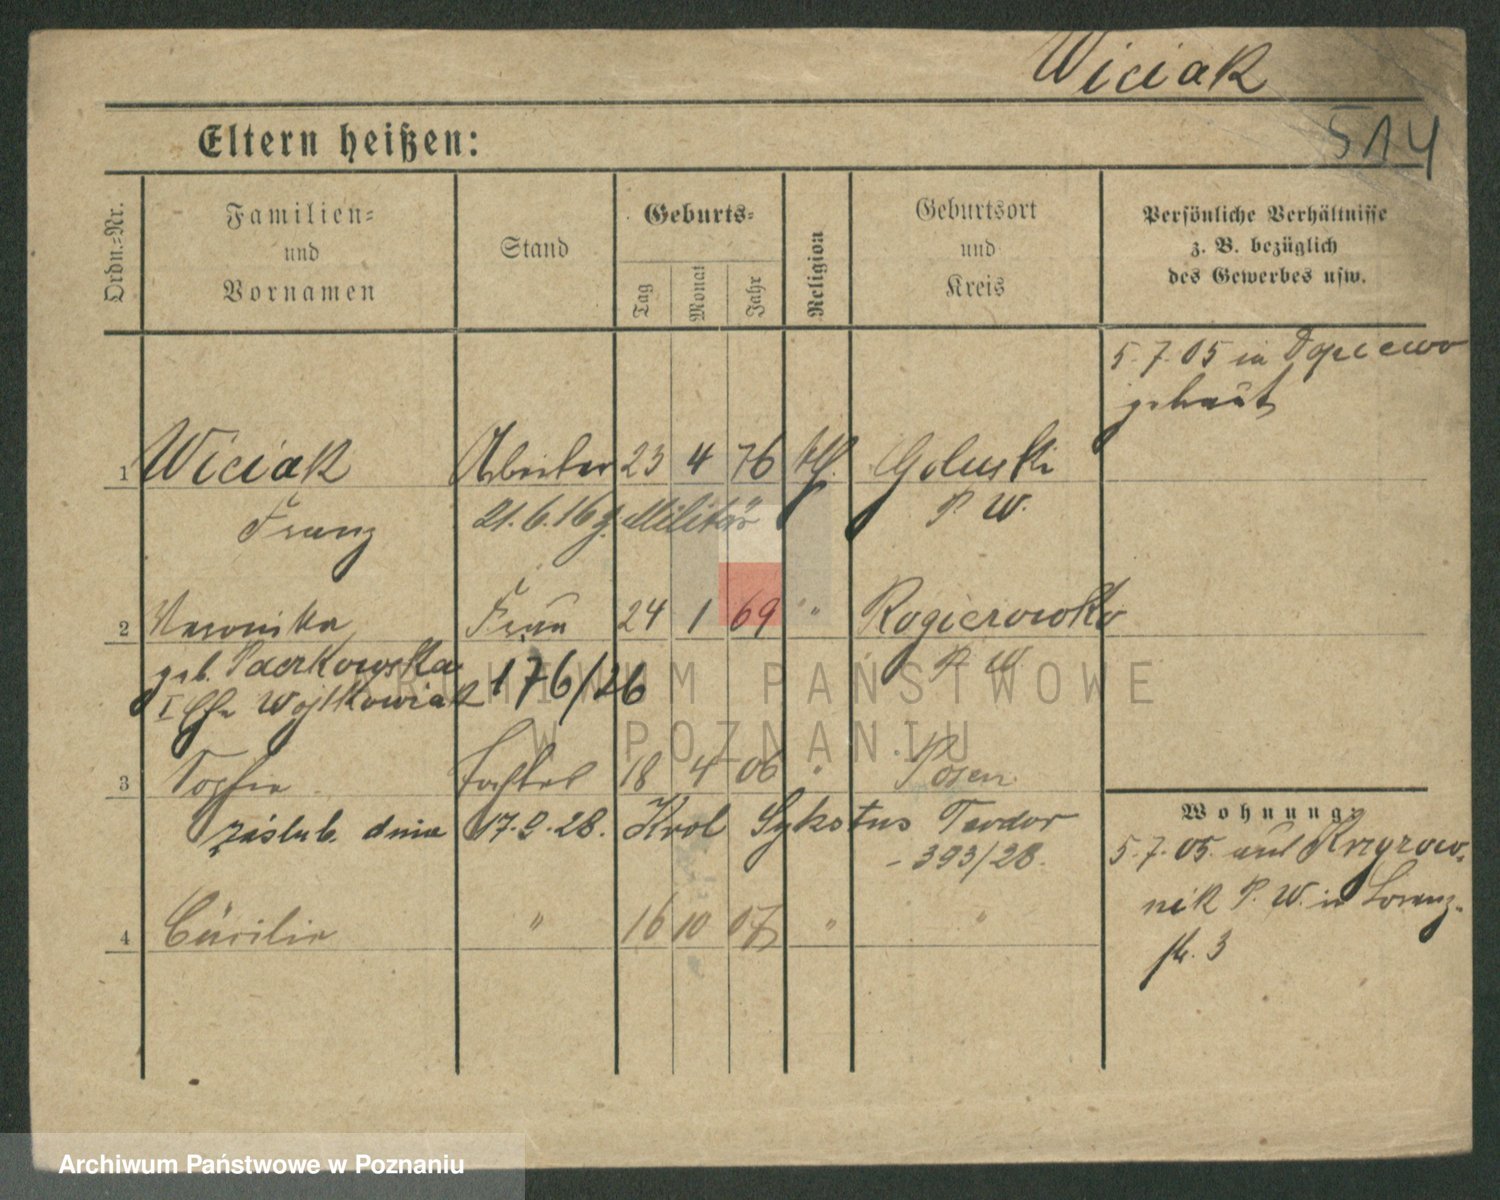 Wiciak
514
Eltern heißen:
Ordn.-Nr.
Familien-
und
Vornamen
Stand
Geburts-
Tag
Monat
Jahr
Religion
Geburtsort
und
Kreis
Persönliche Verhältnisse
z. B. bezüglich
des Gewerbes usw.
5.7.05 in Dopiewo
getraut
1 Wiciak Arbeiter 23 4 76 kth. Goluski
Franz 21.6.16 z. Militär P. W.
2 Veronika Frau 24 1 69 " Rogierowko
geb. Paerkowska 176/26 P. W.
I Ehe Wojtkowiak
3 Sophie Tochter 18 4 06 " Posen
záslub. dnia 17.9.28. Krol Sykstus Teodor
- 393/28.
4 Cäcilie " 16 10 07 " "
Wohnung:
5.7.05. aus Krzyzow-
nik P. W. in Lorenz-
str. 3
ARCHIWUM PAŃSTWOWE
W POZNANIU
Archiwum Państwowe w Poznaniu